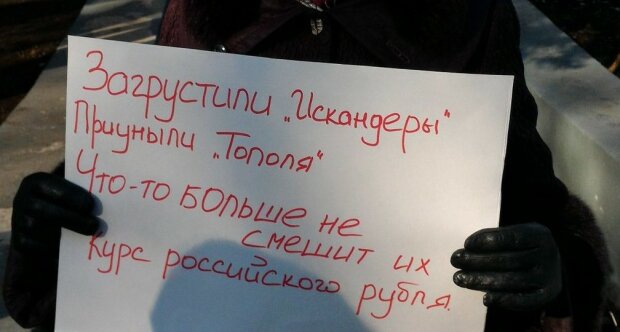 Загрустили „Искандеры"
Приуныли „Тополя"
Что-то больше не
смешит их
Курс российского рубля.